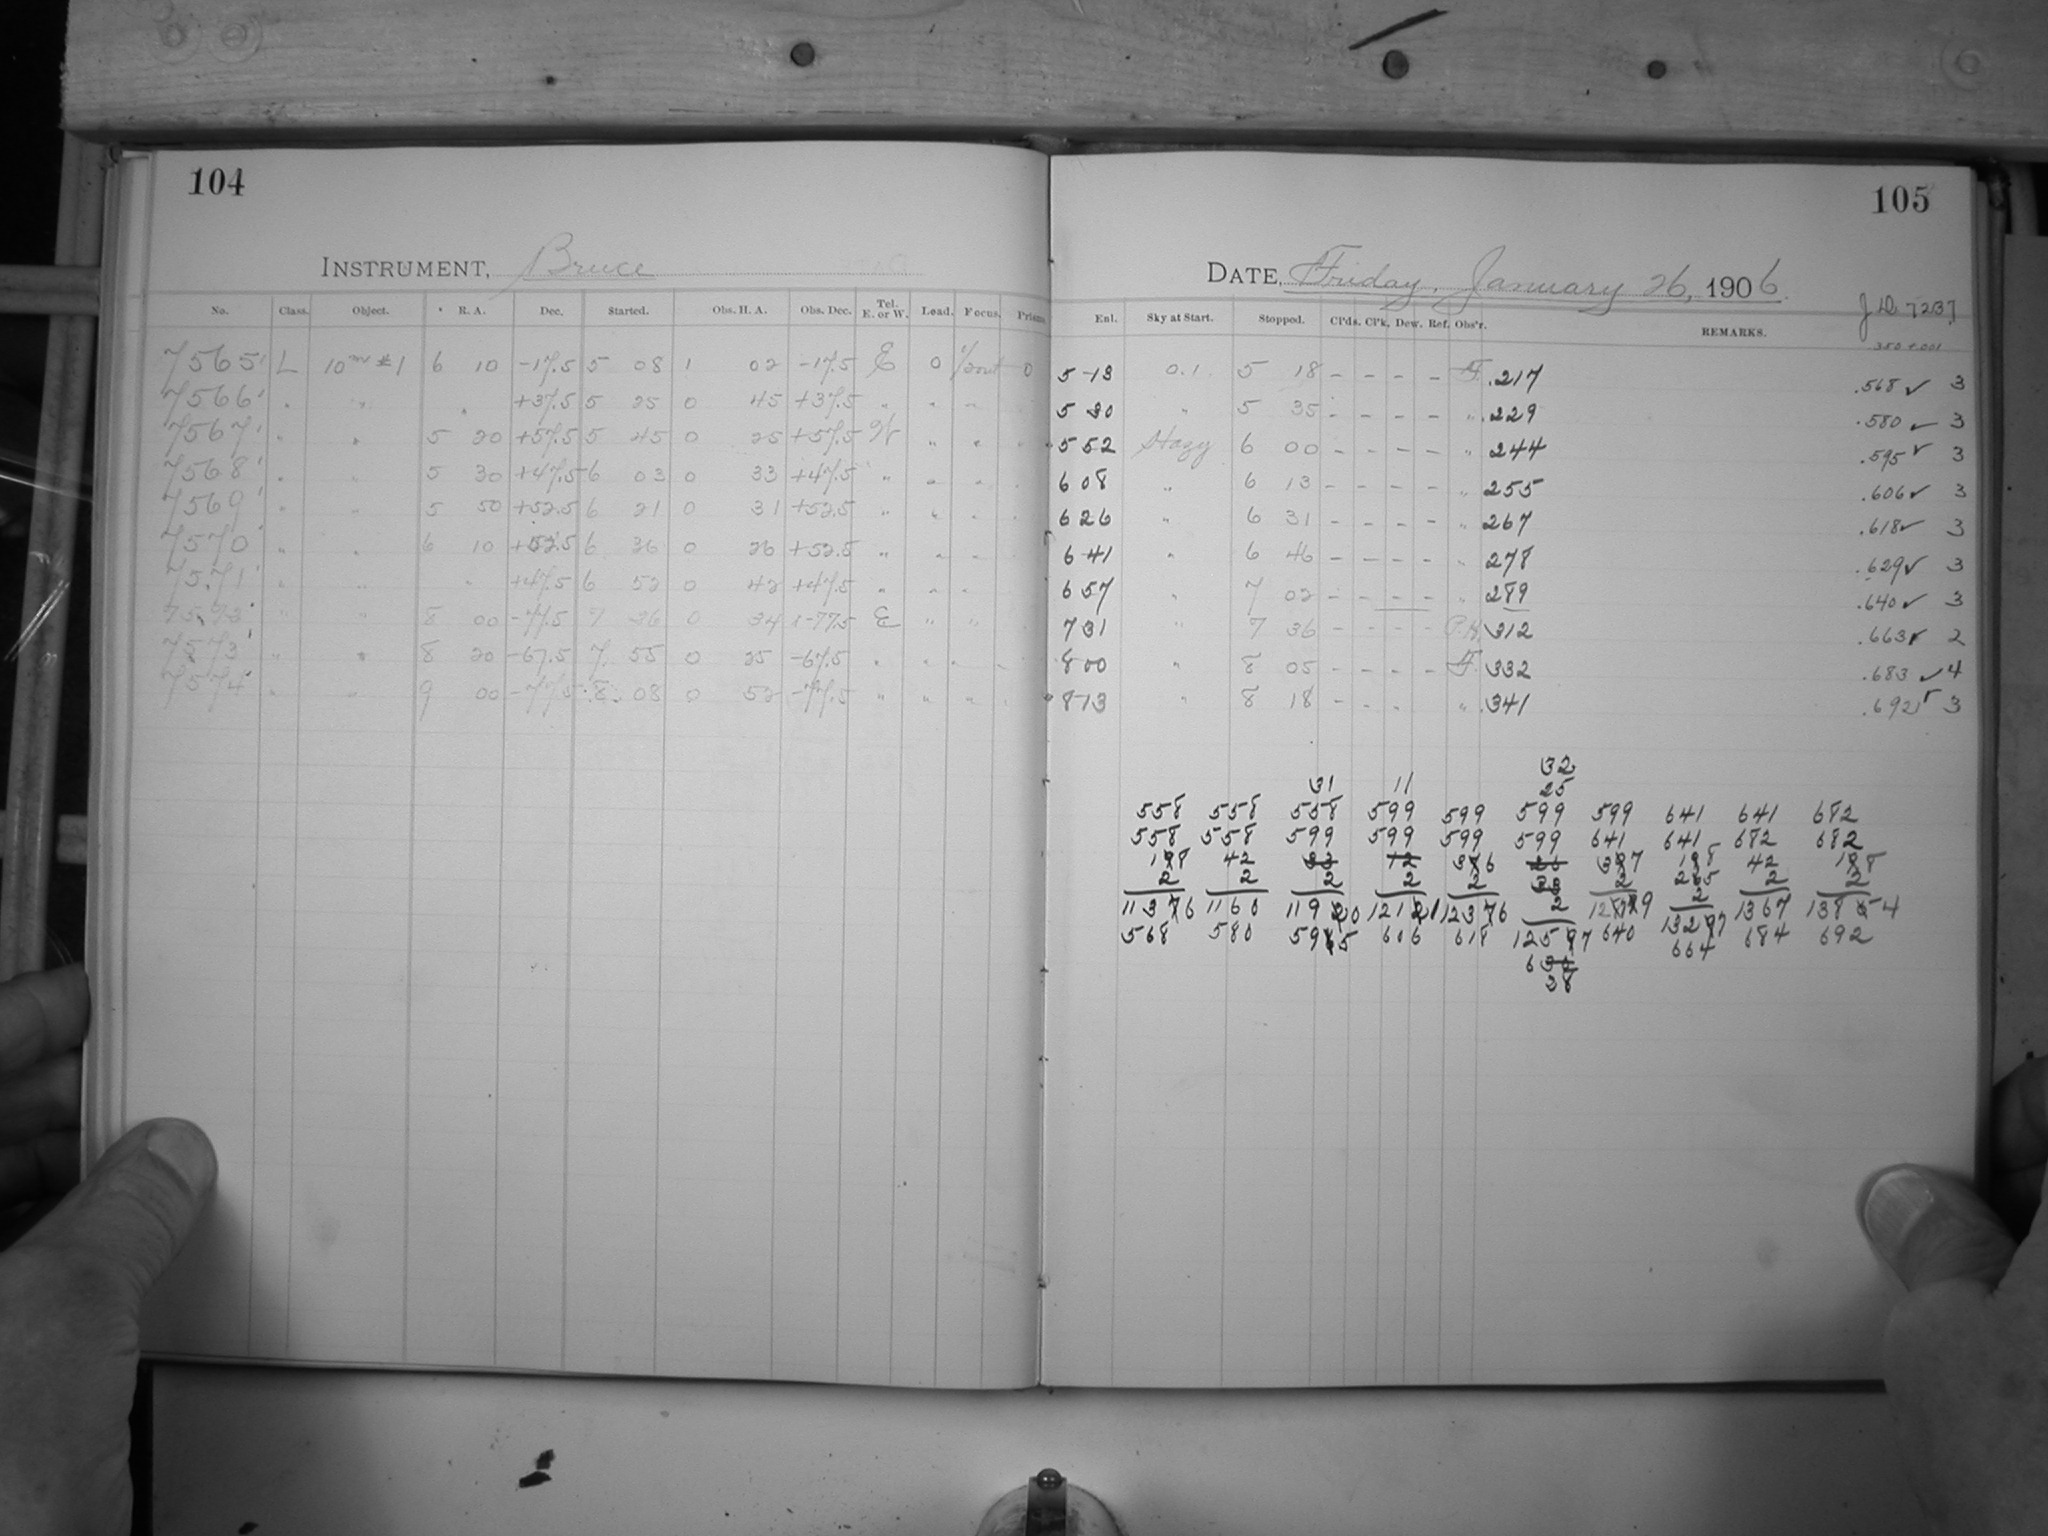 104
INSTRUMENT, Bruce
No. Class. Object. R. A. Dec. Started. Obs. H. A. Obs. Dec. Tel. E. or W. Lead. Focus. Prisms
7565 L 10m #1 6 10 -17.5 5 08 1 02 -17.5 E 0 0
7566 " " " +37.5 5 25 0 45 +37.5 " " "
7567 " " 5 20 +57.5 5 45 0 25 +57.5 W " " "
7568 " " 5 30 +47.5 6 03 0 33 +47.5 " " " "
7569 " " 5 50 +52.5 6 21 0 31 +52.5 " " " "
7570 " " 6 10 +52.5 6 36 0 26 +52.5 " " " "
7571 " " " +47.5 6 52 0 42 +47.5 " " "
7572 " " 8 00 -77.5 7 26 0 34 -77.5 E " "
7573 " " 8 20 -67.5 7 55 0 25 -67.5 " " " "
7574 " " 9 00 -77.5 8 08 0 52 -77.5 " " " "
105
DATE, Friday, January 26, 1906
J.D. 7237
Enl. Sky at Start. Stopped. Cl'ds. Cl'k. Dew. Ref. Obs'r. REMARKS.
350 + .001
5 13 0.1 5 18 - - - - F. .217 .568 ✓ 3
5 30 " 5 35 - - - - " .229 .580 ✓ 3
5 52 Hazy 6 00 - - - - " 244 .595 ✓ 3
6 08 " 6 13 - - - - " 255 .606 ✓ 3
6 26 " 6 31 - - - - " 267 .618 ✓ 3
6 41 " 6 46 - - - - " 278 .629 ✓ 3
6 57 " 7 02 - - - - " 289 .640 ✓ 3
7 31 " 7 36 - - - - 312 .663 ✓ 2
8 00 " 8 05 - - - - F. 332 .683 ✓ 4
8 13 " 8 18 - - - " 341 .692 ✓ 3
32
31 11 25
558 558 558 599 599 599 599 641 641 682
558 558 599 599 599 599 641 641 682 682
42 42
2 2 2 2 2 2 2 2 2 2
1160 1367
568 580 606 618 640 664 684 692
38